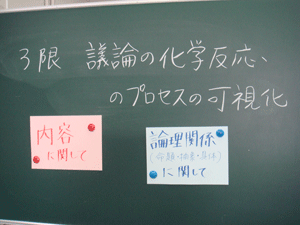 3限 議論の化学反応、
のプロセスの可視化
内容
に関して
論理関係
に関して